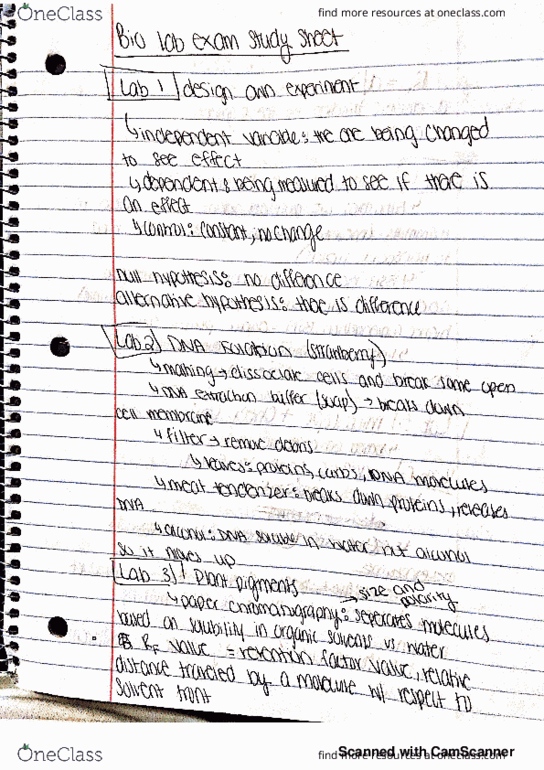 OneClass
find more resources at oneclass.com
Bio lab exam study sheet
Lab 1 design an experiment
↳ independent variable: the are being changed
to see effect
↳ dependent: being measured to see if there is
an effect
↳ control: constant, no change
null hypothesis: no difference
alternative hypothesis: there is difference
Lab 2) DNA (strawberry)
↳ mashing → dissociate cells and break some open
↳ DNA extraction buffer (soap) → breaks down
cell membrane
↳ filter → remove debris
↳ leaves: proteins, carbs, DNA molecules
↳ meat tenderizer: breaks down proteins, releases
DNA
↳ alcohol: DNA soluble in water not alcohol
so it up
Lab 3) Plant pigments
→ size and
polarity
↳ paper chromatography: seperates molecules
based on solubility in organic solvents vs water
RF value = retention factor value, relative
distance traveled by a molecule w/ respect to
solvent front
Scanned with CamScanner
OneClass
find more resources at oneclass.com